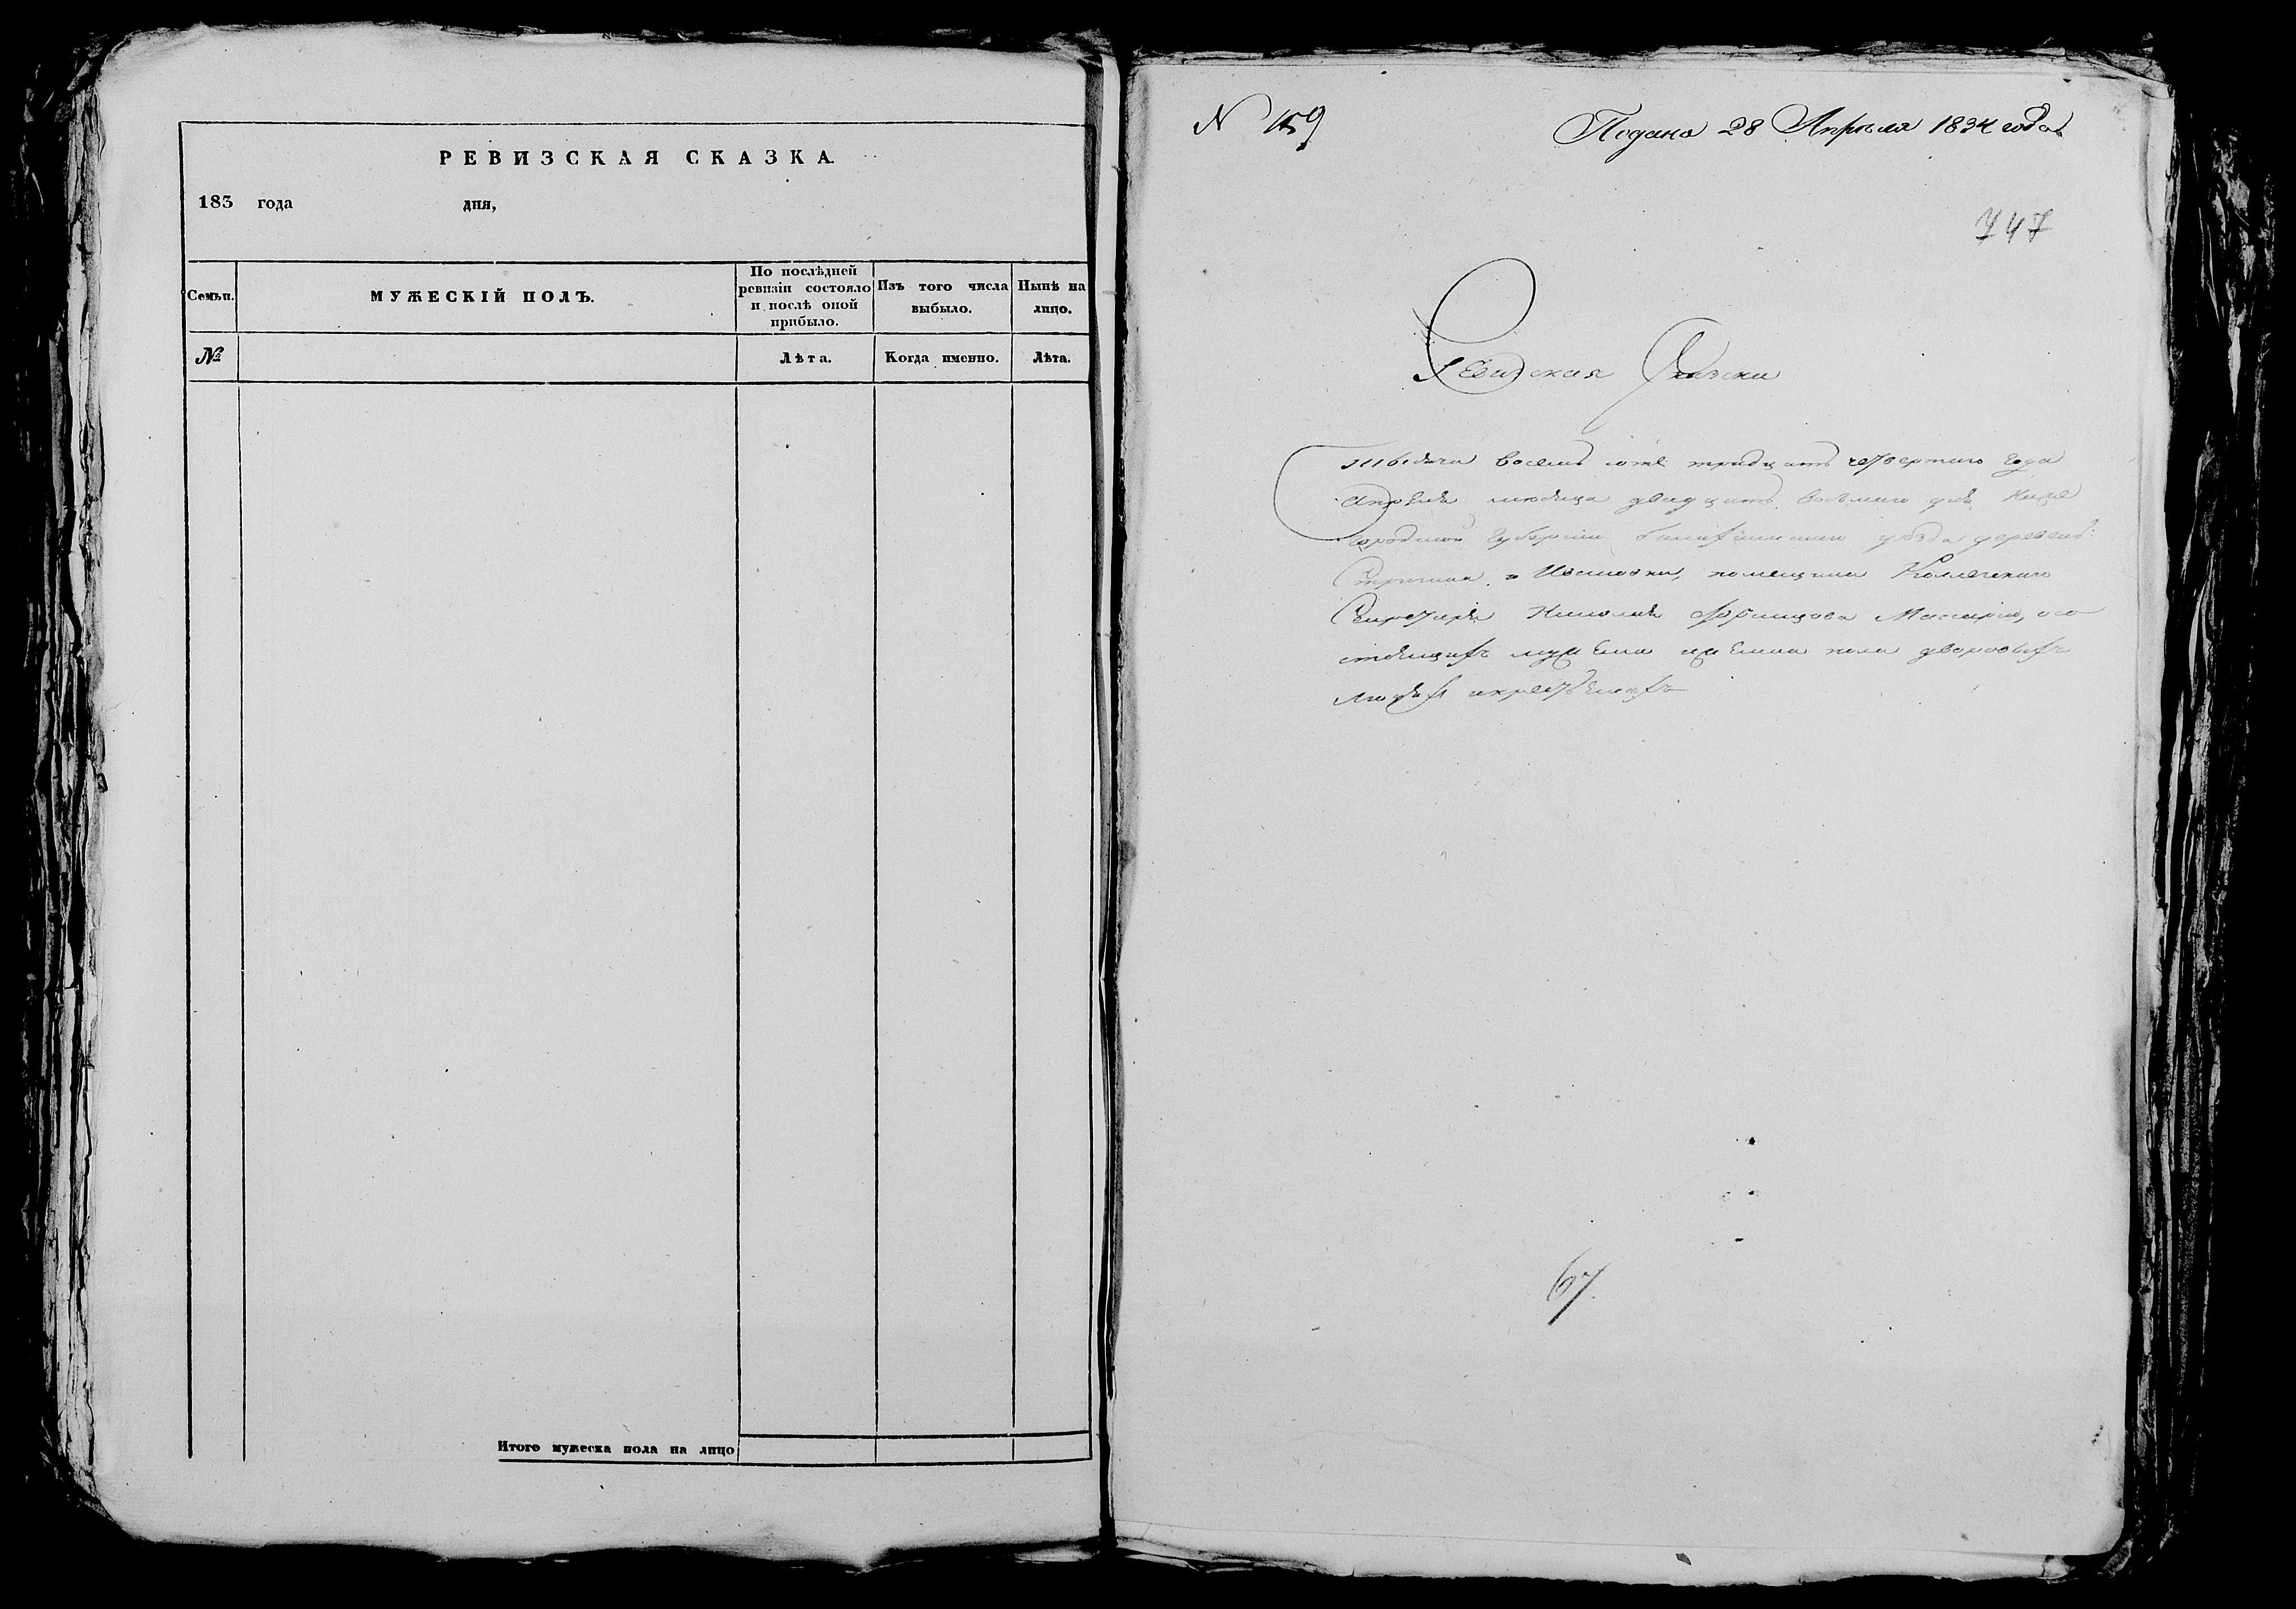 РЕВИЗСКАЯ СКАЗКА.
183 года дня,
Семьи.
МУЖЕСКІЙ ПОЛЪ.
По послѣдней
ревизіи состояло
и послѣ оной
прибыло.
Изъ того числа
выбыло.
Нынѣ на
лицо.
№
Лѣта.
Когда именно.
Лѣта.
Итого мужеска пола на лицо
N 159
Подана 28 Апрѣля 1834 года
747
Ревизская Сказка
Тысяча восемь сотъ тридцать четвертаго года
Апрѣля месяца двадцать восьмаго дня Ниже
городской Губерніи уезда деревень
помещика Колежскаго
Секретаря Николая
состоящихъ мужеска и женска пола дворовыхъ
людяхъ и крестьянахъ
67.